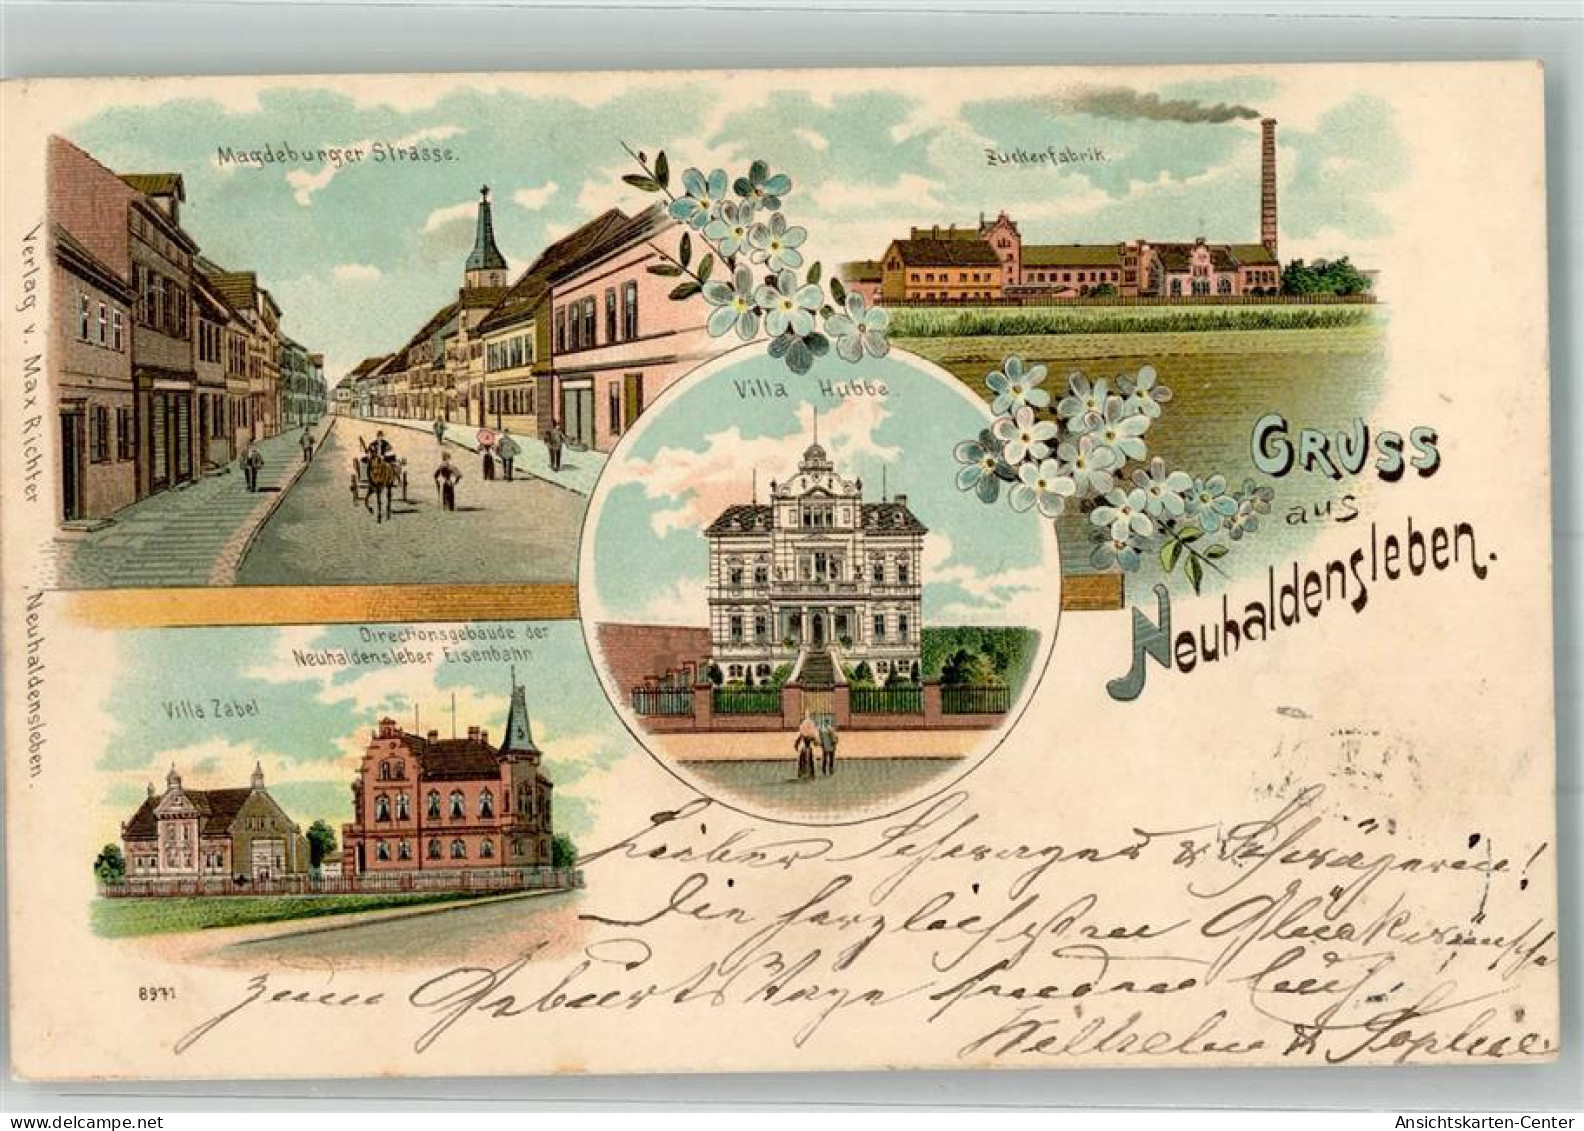 Magdeburger Strasse.
Zuckerfabrik.
Villa Hubbe.
GRUSS
aus
Neuhaldensleben.
Directionsgebäude der
Neuhaldensleber Eisenbahn
Villa Zabel
Verlag v. Max Richter, Neuhaldensleben.
8971
Lieber Schwager & Schwägerin!
Die herzlichsten Glückwünsche
zum Geburtstage senden Euch
Wilhelm & Sophie.
www.ansichtskartenversand.com
Ansichtskarten-Center